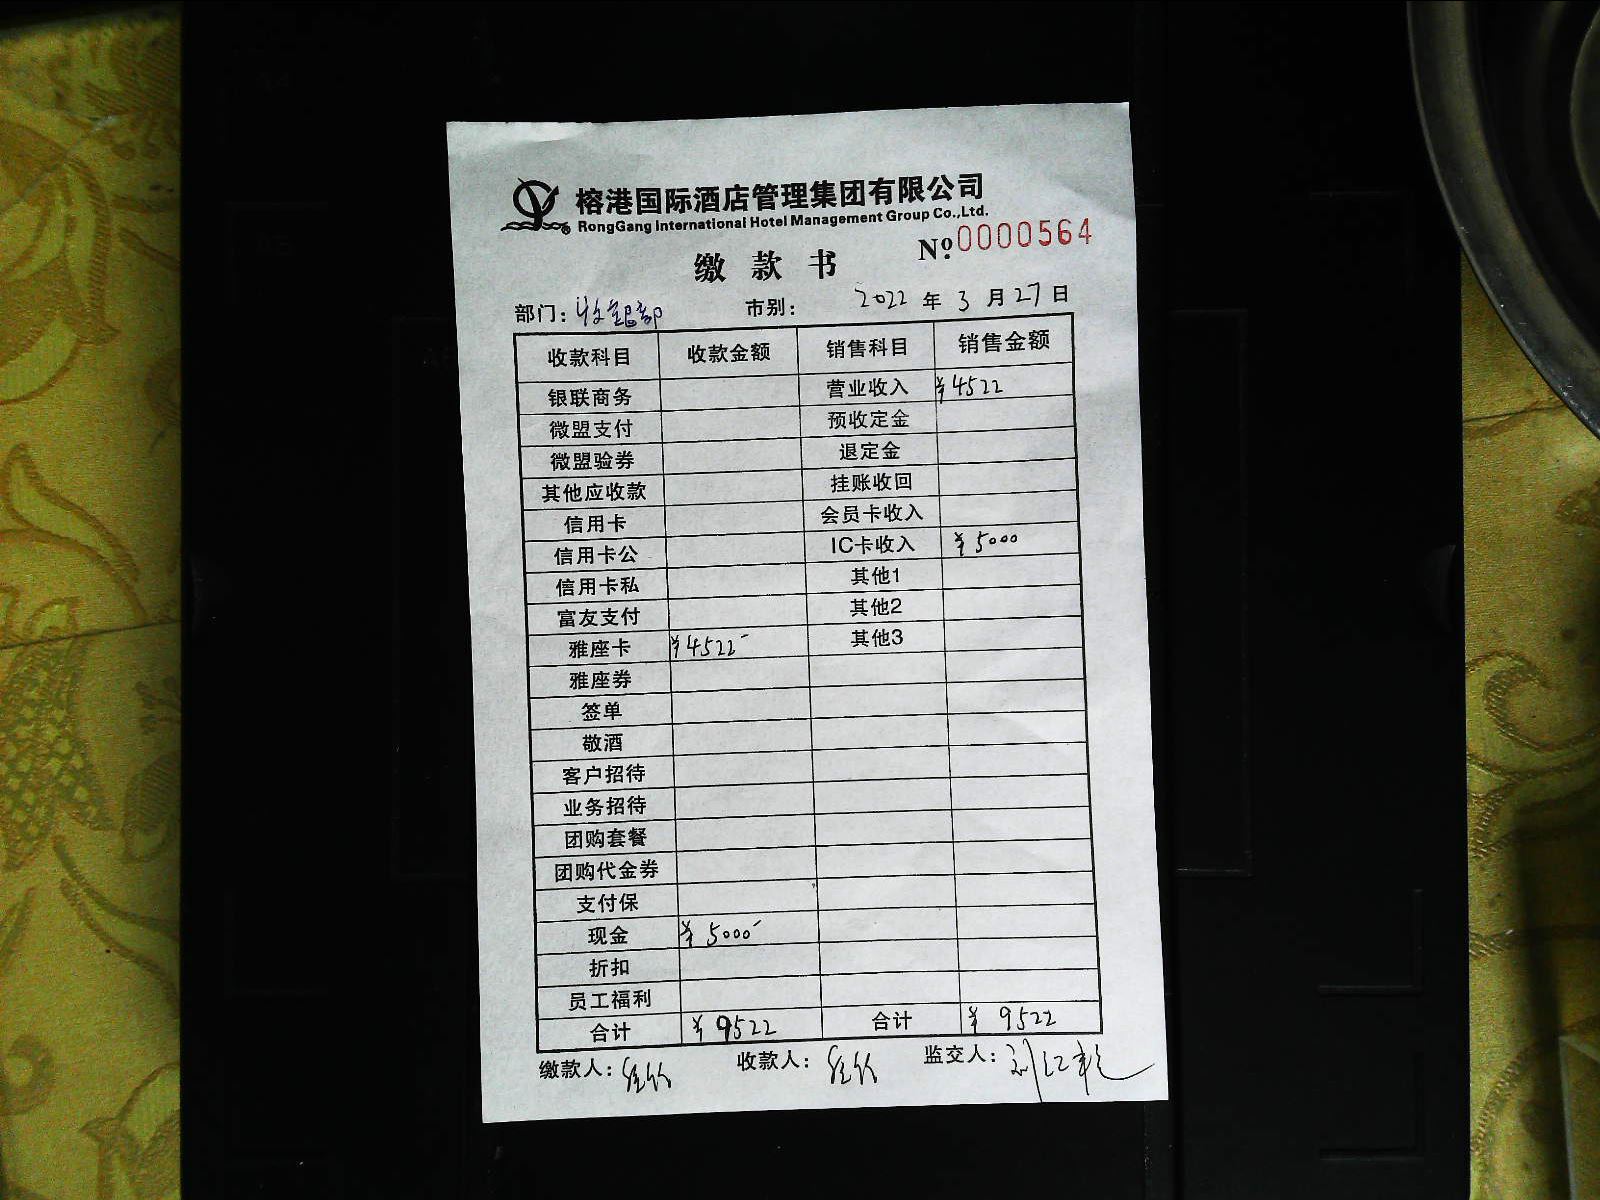 榕港国际酒店管理集团有限公司
RongGang International Hotel Management Group Co.,Ltd.
缴款书 Nº 0000564
部门: 市别: 2022年3月27日
收款科目 收款金额 销售科目 销售金额
银联商务 营业收入 ¥4522
微盟支付 预收定金
微盟验券 退定金
其他应收款 挂账收回
信用卡 会员卡收入
信用卡公 IC卡收入 ¥5000
信用卡私 其他1
富友支付 其他2
雅座卡 ¥4522 其他3
雅座券
签单
敬酒
客户招待
业务招待
团购套餐
团购代金券
支付保
现金 ¥5000
折扣
员工福利
合计 ¥9522 合计 ¥9522
缴款人: 收款人: 监交人: